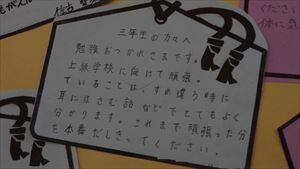 三年生の方々へ
勉強おつかれさまです。
上級学校に向けて頑張っ
ていることは、すれ違う時に
耳にはさむ話などでとてもよく
分かります。これまで頑張った分
を本番だしきってください。
ください
体に気